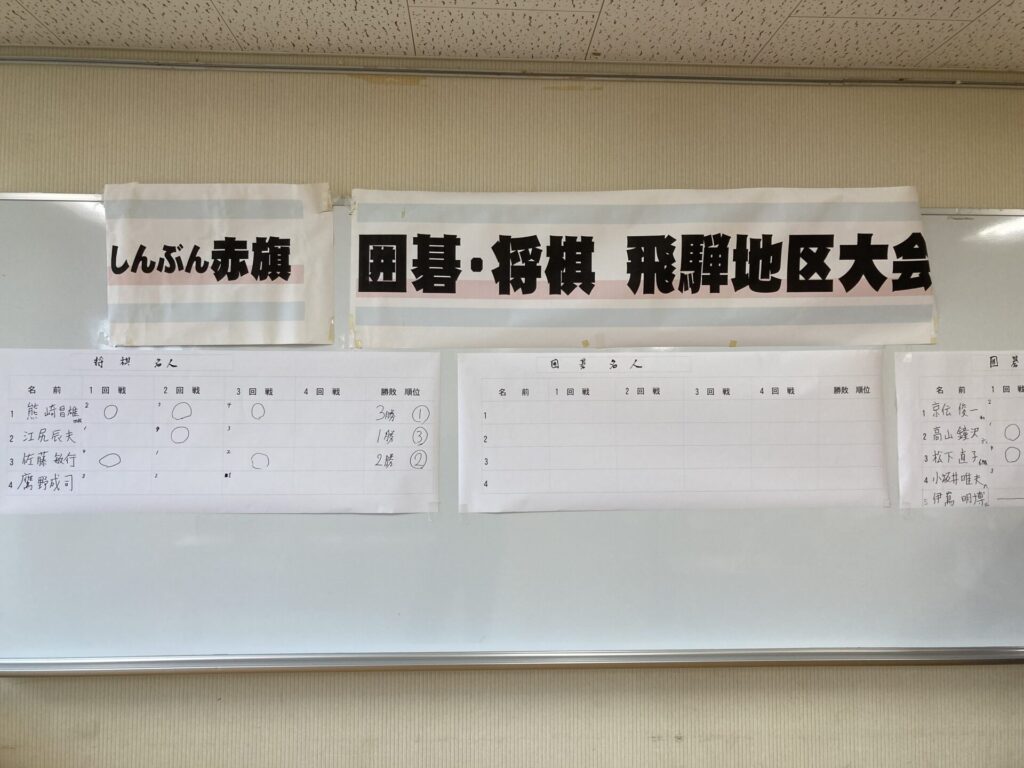 しんぶん赤旗
囲碁・将棋 飛騨地区大会
将棋名人
名前 1回戦 2回戦 3回戦 4回戦 勝敗 順位
1 熊崎昌雄 2 ○ 3 ○ 4 ○ 3勝 ①
2 江尻辰夫 1 9 ○ 3 1勝 ③
3 佐藤敏行 4 ○ 1 2 ○ 2勝 ②
4 鷹野成司 3 2 1
囲碁名人
名前 1回戦 2回戦 3回戦 4回戦 勝敗 順位
1
2
3
4
囲碁
名前 1回戦
1 京伝俊一
2 高山鐘沢 ○
3 松下直子 ○
4 小坂井唯夫
5 伊 明博